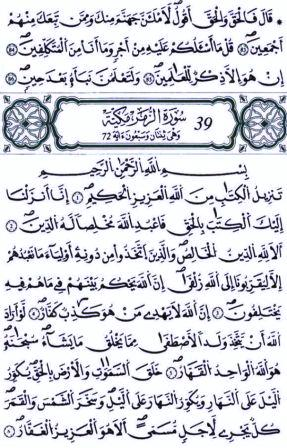 قَالَ فَالْحَقَّ وَالْحَقَّ أَقُولُ لَأَمْلَأَنَّ جَهَنَّمَ مِنكَ وَمِمَّن تَبِعَكَ مِنْهُمْ
أَجْمَعِينَ قُلْ مَا أَسْـَٔلُكُمْ عَلَيْهِ مِنْ أَجْرٍ وَمَا أَنَا مِنَ الْمُتَكَلِّفِينَ
إِنْ هُوَ إِلَّا ذِكْرٌ لِّلْعَٰلَمِينَ وَلَتَعْلَمُنَّ نَبَأَهُ بَعْدَ حِينٍ
39 سُورَةُ الزُّمَرِ مَكِّيَّةٌ
وَهِيَ ثِنْتَانِ وَسَبْعُونَ ءَايَةً 72
بِسْمِ اللَّهِ الرَّحْمَٰنِ الرَّحِيمِ
تَنزِيلُ الْكِتَٰبِ مِنَ اللَّهِ الْعَزِيزِ الْحَكِيمِ إِنَّا أَنزَلْنَا
إِلَيْكَ الْكِتَٰبَ بِالْحَقِّ فَاعْبُدِ اللَّهَ مُخْلِصًا لَّهُ الدِّينَ
أَلَا لِلَّهِ الدِّينُ الْخَالِصُ وَالَّذِينَ اتَّخَذُوا مِن دُونِهِ أَوْلِيَاءَ مَا نَعْبُدُهُمْ
إِلَّا لِيُقَرِّبُونَا إِلَى اللَّهِ زُلْفَىٰ إِنَّ اللَّهَ يَحْكُمُ بَيْنَهُمْ فِي مَا هُمْ فِيهِ
يَخْتَلِفُونَ إِنَّ اللَّهَ لَا يَهْدِي مَنْ هُوَ كَٰذِبٌ كَفَّارٌ لَّوْ أَرَادَ
اللَّهُ أَن يَتَّخِذَ وَلَدًا لَّاصْطَفَىٰ مِمَّا يَخْلُقُ مَا يَشَاءُ سُبْحَٰنَهُ
هُوَ اللَّهُ الْوَاحِدُ الْقَهَّارُ خَلَقَ السَّمَٰوَٰتِ وَالْأَرْضَ بِالْحَقِّ يُكَوِّرُ
الَّيْلَ عَلَى النَّهَارِ وَيُكَوِّرُ النَّهَارَ عَلَى الَّيْلِ وَسَخَّرَ الشَّمْسَ وَالْقَمَرَ
كُلٌّ يَجْرِي لِأَجَلٍ مُّسَمًّى أَلَا هُوَ الْعَزِيزُ الْغَفَّٰرُ